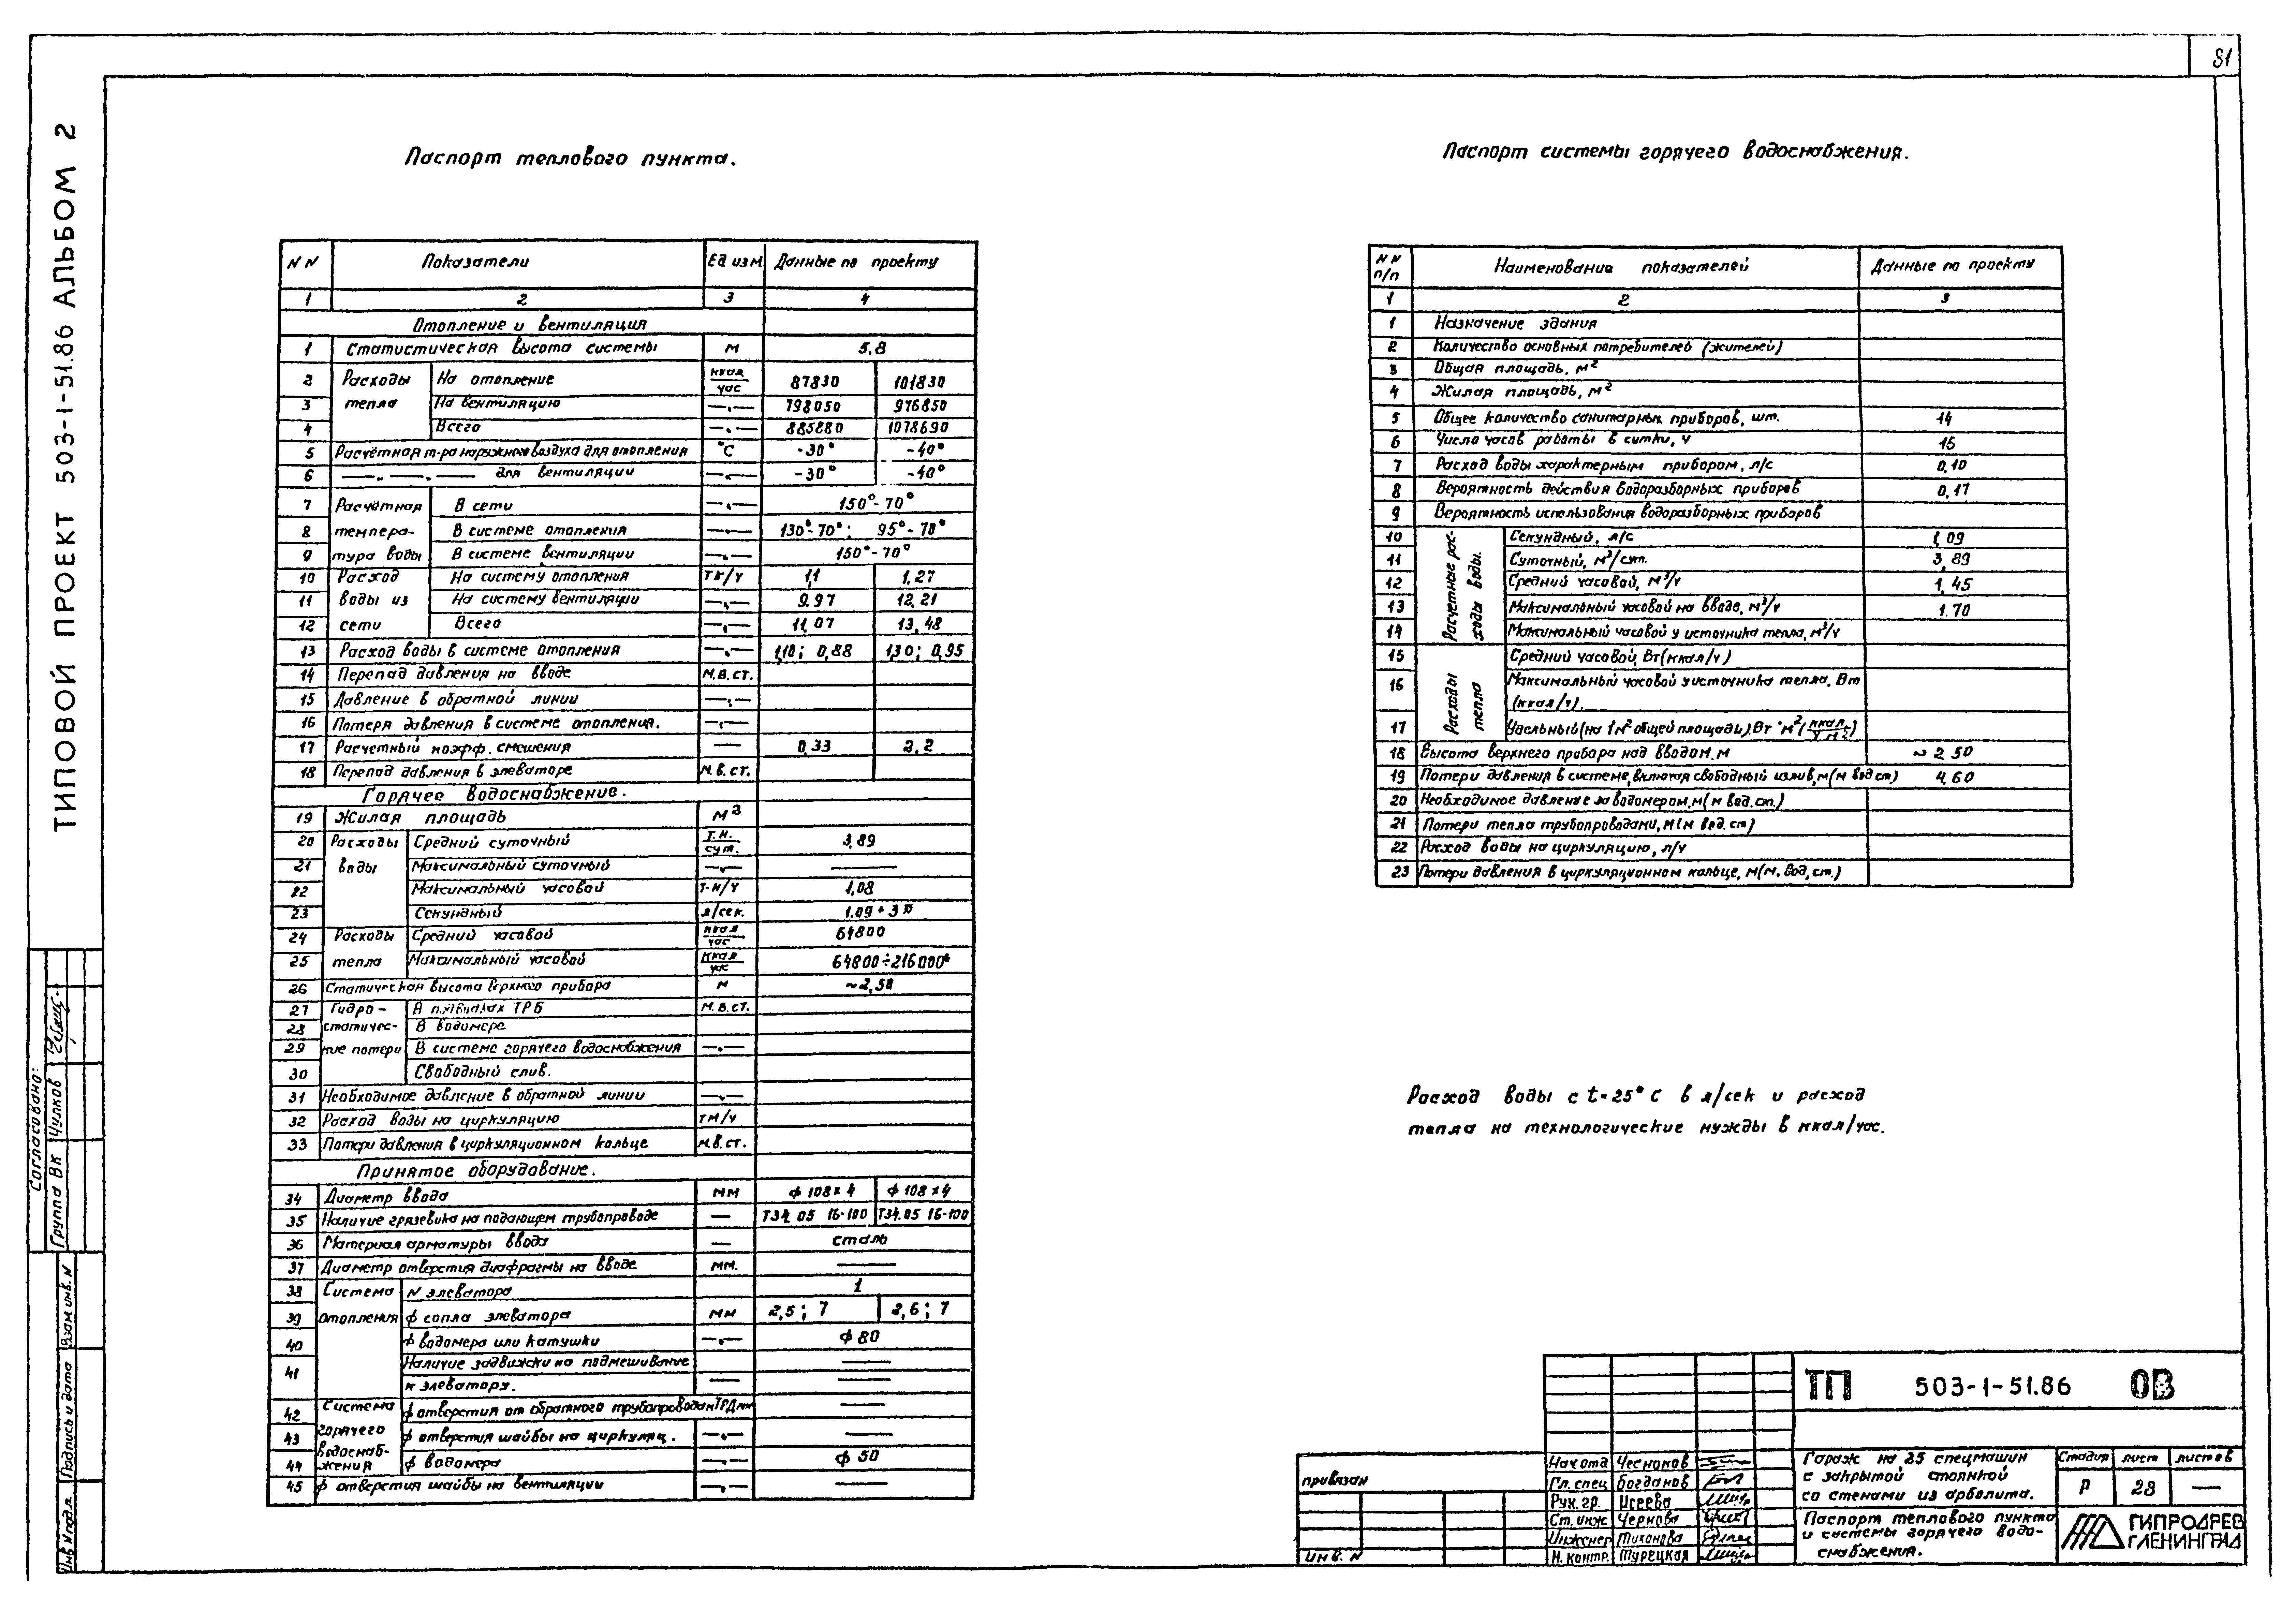 81
ТИПОВОЙ ПРОЕКТ 503-1-51.86 АЛЬБОМ 2
Паспорт теплового пункта.
NN Показатели Ед изм Данные по проекту
1 2 3 4
Отопление и вентиляция
1 Статистическая высота системы м 5,8
2 Расходы тепла На отопление ккал/час 87830 101830
3 На вентиляцию —"— 798050 976850
4 Всего —"— 885880 1078690
5 Расчётная т-ра наружного воздуха для отопления °С -30° -40°
6 —"— —"— для вентиляции —"— -30° -40°
7 Расчётная температура воды В сети —"— 150°-70°
8 В системе отопления —"— 130°-70°; 95°-70°
9 В системе вентиляции —"— 150°-70°
10 Расход воды из сети На систему отопления тн/ч 1,1 1,27
11 На систему вентиляции —"— 9.97 12,21
12 Всего —"— 11,07 13,48
13 Расход воды в системе отопления —"— 1,10; 0,88 1,30; 0,95
14 Перепад давления на вводе м.в.ст.
15 Давление в обратной линии —"—
16 Потеря давления в системе отопления. —"—
17 Расчетный коэфф. смешения — 0,33 2,2
18 Перепад давления в элеваторе м.в.ст.
Горячее водоснабжение.
19 Жилая площадь м2
20 Расходы воды Средний суточный т.н./сут. 3,89
21 Максимальный суточный —"— —
22 Максимальный часовой т-н/ч 1,08
23 Секундный л/сек. 1,09+3*
24 Расходы тепла Средний часовой ккал/час 64800
25 Максимальный часовой ккал/час 64800÷216000*
26 Статическая высота верхнего прибора м ~2,50
27 Гидростатические потери В подвидках ТРБ м.в.ст.
28 В водомере
29 В системе горячего водоснабжения —"—
30 Свободный слив.
31 Необходимое давление в обратной линии —"—
32 Расход воды на циркуляцию тн/ч
33 Потери давления в циркуляционном кольце м.в.ст.
Принятое оборудование.
34 Диаметр ввода мм ф 108×4 ф 108×4
35 Наличие грязевика на подающем трубопроводе — Т34.05 16-100 Т34.05 16-100
36 Материал арматуры ввода — сталь
37 Диаметр отверстия диафрагмы на вводе мм. —
38 Система отопления N элеватора 1
39 ф сопла элеватора мм 2,5; 7 2,6; 7
40 ф водомера или катушки —"— ф 80
41 Наличие задвижки на подмешивание —
к элеватору. — —
42 Система горячего водоснабжения ф отверстия от обратного трубопровода ТРД мм —
43 ф отверстия шайбы на циркуляц. —"— —
44 ф водомера —"— ф 50
45 ф отверстия шайбы на вентиляции —"— —
Паспорт системы горячего водоснабжения.
NN п/п Наименование показателей Данные по проекту
1 2 3
1 Назначение здания
2 Количество основных потребителей (жителей)
3 Общая площадь, м2
4 Жилая площадь, м2
5 Общее количество санитарных приборов, шт. 14
6 Число часов работы в сутки, ч 15
7 Расход воды характерным прибором, л/с 0,10
8 Вероятность действия водоразборных приборов 0,17
9 Вероятность использования водоразборных приборов
10 Расчетные расходы воды. Секундный, л/с 1,09
11 Суточный, м3/сут. 3,89
12 Средний часовой, м3/ч 1,45
13 Максимальный часовой на вводе, м3/ч 1.70
14 Максимальный часовой у источника тепла, м3/ч
15 Расходы тепла Средний часовой, Вт(ккал/ч)
16 Максимальный часовой у источника тепла, Вт
(ккал/ч).
17 Удельный (на 1м2 общей площади), Вт·м2 (ккал/ч м2)
18 Высота верхнего прибора над вводом, м ~2,50
19 Потери давления в системе, включая свободный излив, м(м вод ст) 4,60
20 Необходимое давление за водомером, м(м вод. ст.)
21 Потери тепла трубопроводами, м(м вод. ст)
22 Расход воды на циркуляцию, л/ч
23 Потери давления в циркуляционном кольце, м(м. вод, ст.)
Расход воды с t=25°С в л/сек и расход
тепла на технологические нужды в ккал/час.
Согласовано:
Группа ВК Чулков
Инв N подл. Подпись и дата Взам инв. N
привязан
инв. N
Нач отд Чесноков
Гл. спец Богданов
Рук. гр. Исеева
Ст. инж Чернова
Инженер Тихонова
Н. контр. Турецкая
ТП 503-1-51.86 ОВ
Гараж на 25 спецмашин
с закрытой стоянкой
со стенами из арболита.
Стадия лист листов
Р 28 —
Паспорт теплового пункта
и системы горячего водо-
снабжения.
ГИПРОДРЕВ
ЛЕНИНГРАД